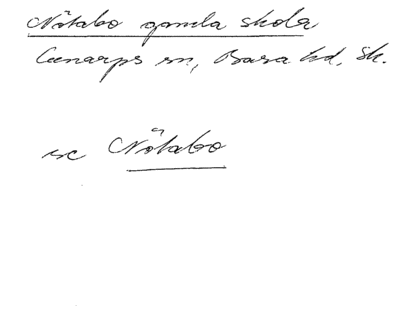 Nötabo gamla skola
Genarps sn, Bara hd, Sk.
se Nötabo